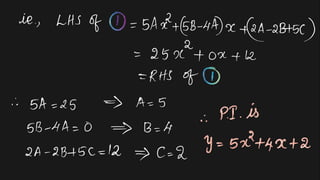 ie., LHS of ① = 5Ax²+(5B-4A)x+(2A-2B+5C)
= 25x²+0x+12
= RHS of ①
∴ 5A=25 ⟹ A=5
5B-4A=0 ⟹ B=4
2A-2B+5C=12 ⟹ C=2
∴ P.I. is
y=5x²+4x+2